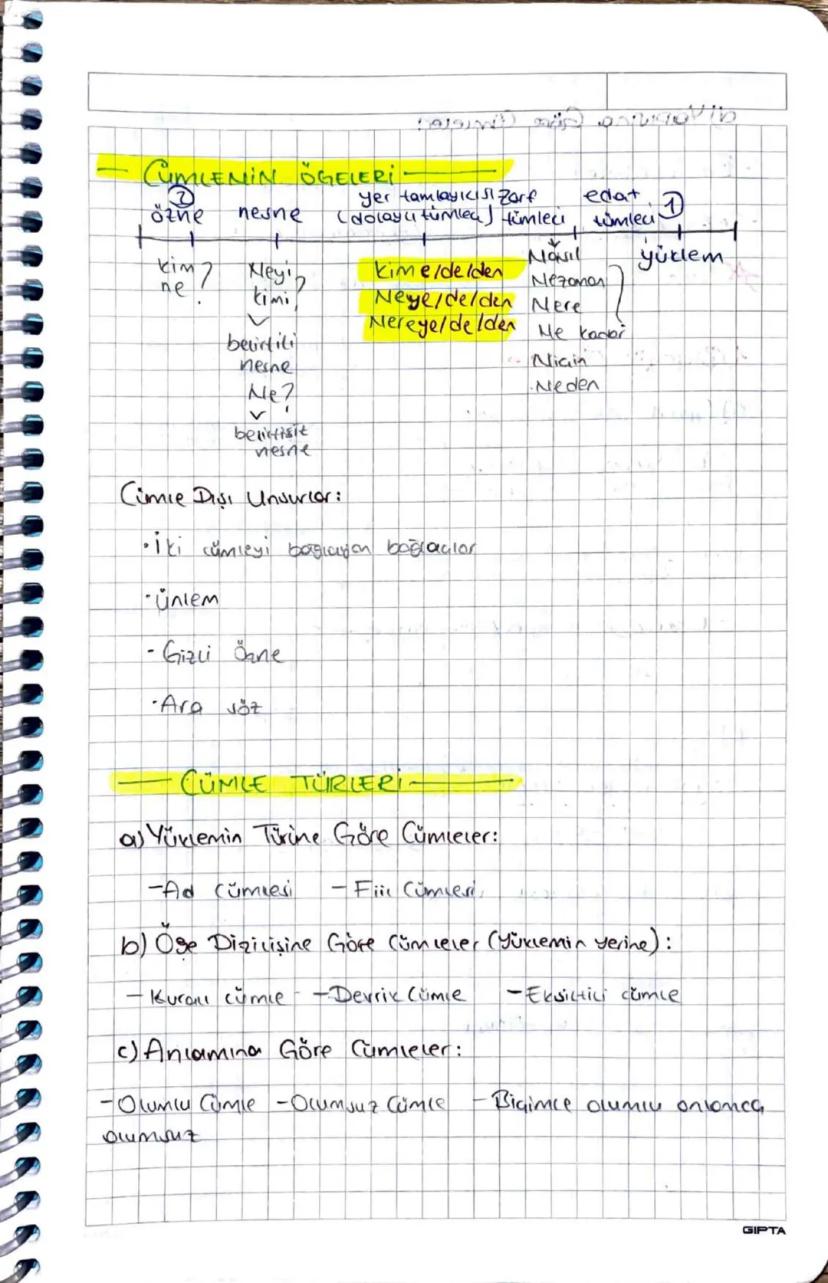 CÜMLENİN ÖGELERİ
2 özne nesne yer tamlayıcısı (dolaylı tümleç) zarf tümleci edat tümleci 1
yüklem
kim ne?
Neyi kimi?
belirtili
nesne
Ne?
belirtisiz
nesne
kime/de/den
Neye/de/den
Nereye/de/den
Nasıl
Nezaman
Nere
Ne kadar
Niçin
Neden
Cümle Dışı Unsurlar:
• İki cümleyi bağlayan bağlaçlar
• Ünlem
- Gizli Özne
• Ara söz
CÜMLE TÜRLERİ
a) Yüklemin Türüne Göre Cümleler:
-Ad Cümlesi - Fiil Cümlesi
b) Öge Dizilişine Göre Cümleler (Yüklemin yerine):
- Kurallı cümle - Devrik Cümle - Eksiltili cümle
c) Anlamına Göre Cümleler:
- Olumlu Cümle - Olumsuz Cümle - Biçimce olumlu anlamca
olumsuz
GIPTA